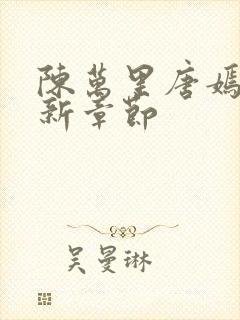 陳萬里唐嫣
新章節
吴曼琳